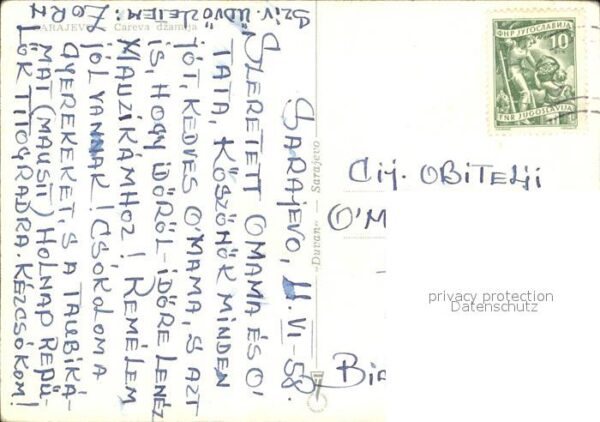 SARAJEVO — Careva džamija
SARAJEVO, 11. VI - 58.
SZERETETT OMAMA ÉS O'
TATA, KÖSZÖNÖK MINDEN
JÓT, KEDVES O'MAMA, S AZT
IS, HOGY IDÖRÖL-IDÖRE LENÉZ
KLAUZIKÁMHOZ! REMÉLEM
JÓL VANNAK! CSÓKOLOM A
GYEREKEKET, S A TAUBIKÁ-
MAT (MAUSII) HOLNAP REPÜ-
LÖK TITOGRADRA. KÉZCSÓKOM!
SZIV. ÜDVÖZLETEM:
„Duvan" — Sarajevo
ФНР ЈУГОСЛАВИЈА
10
FNR JUGOSLAVIJA
Cij. OBITELJI
O'M
privacy protection
Datenschutz